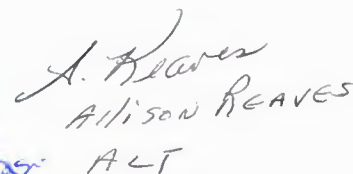 A. Reaves
AlliSON REAVES
ALT